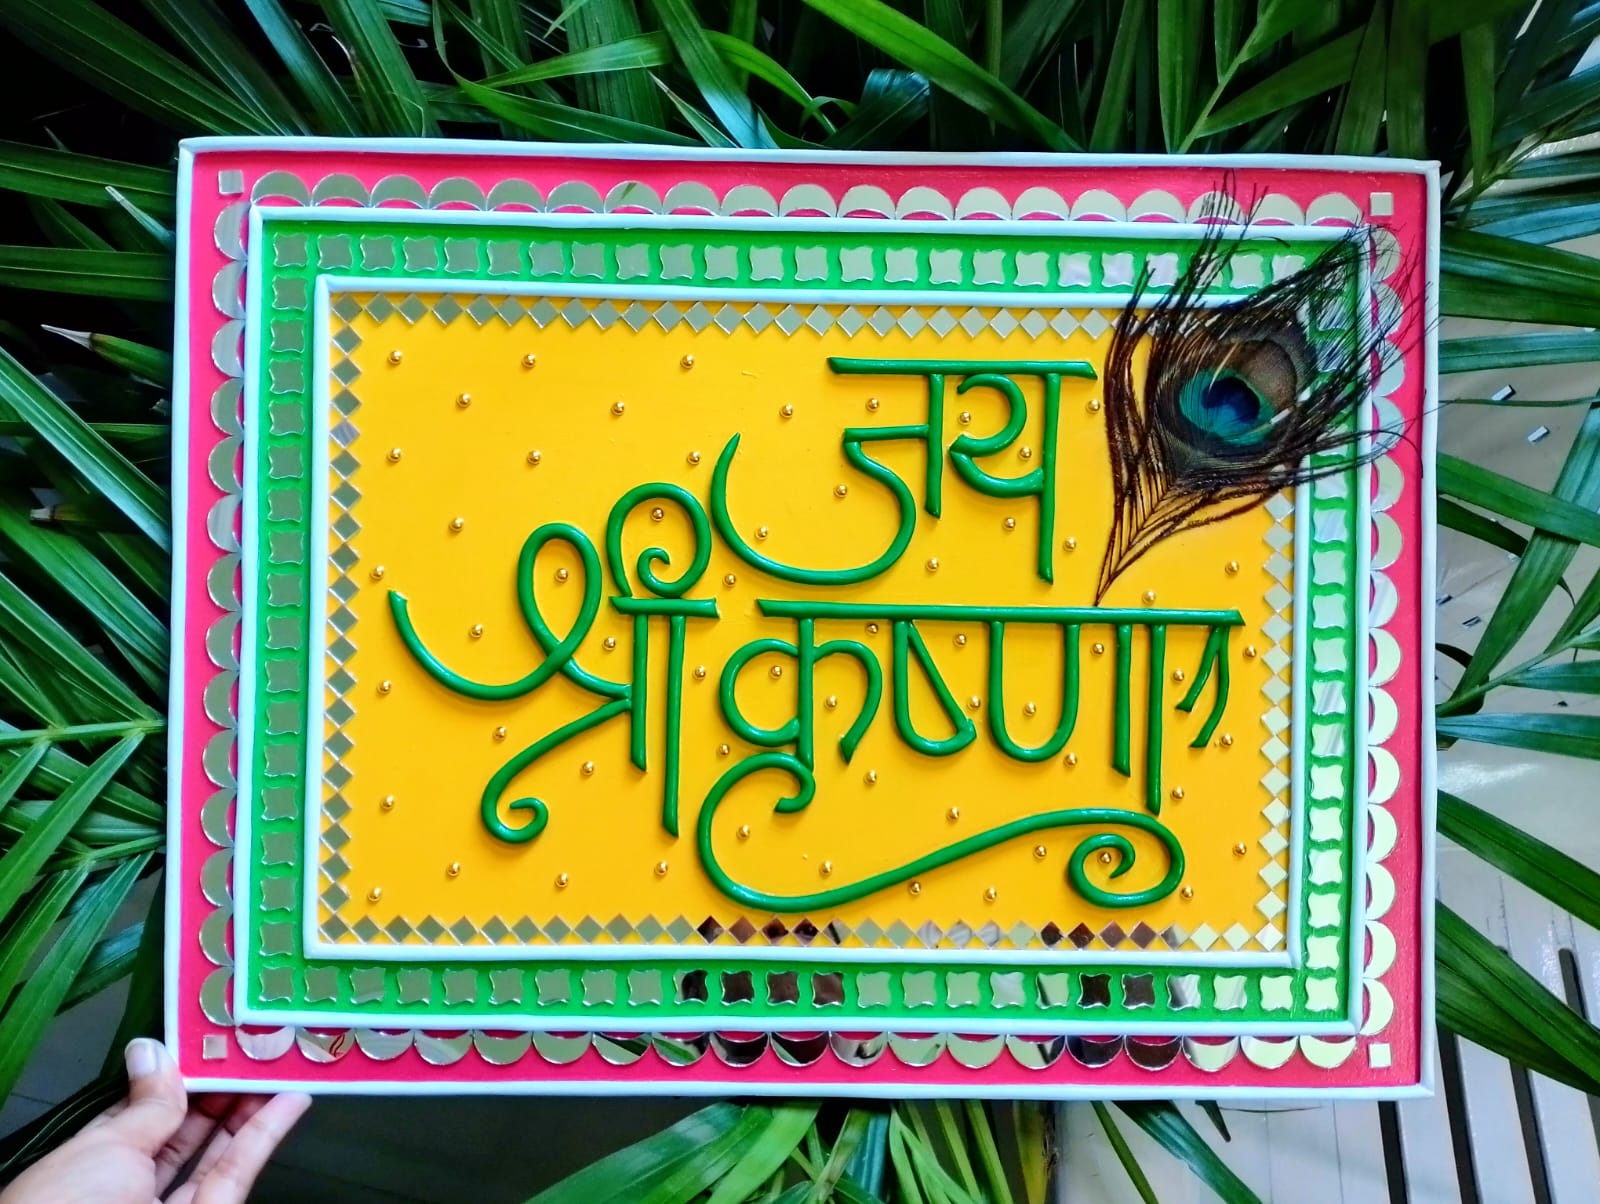 जय
श्री कृष्णा